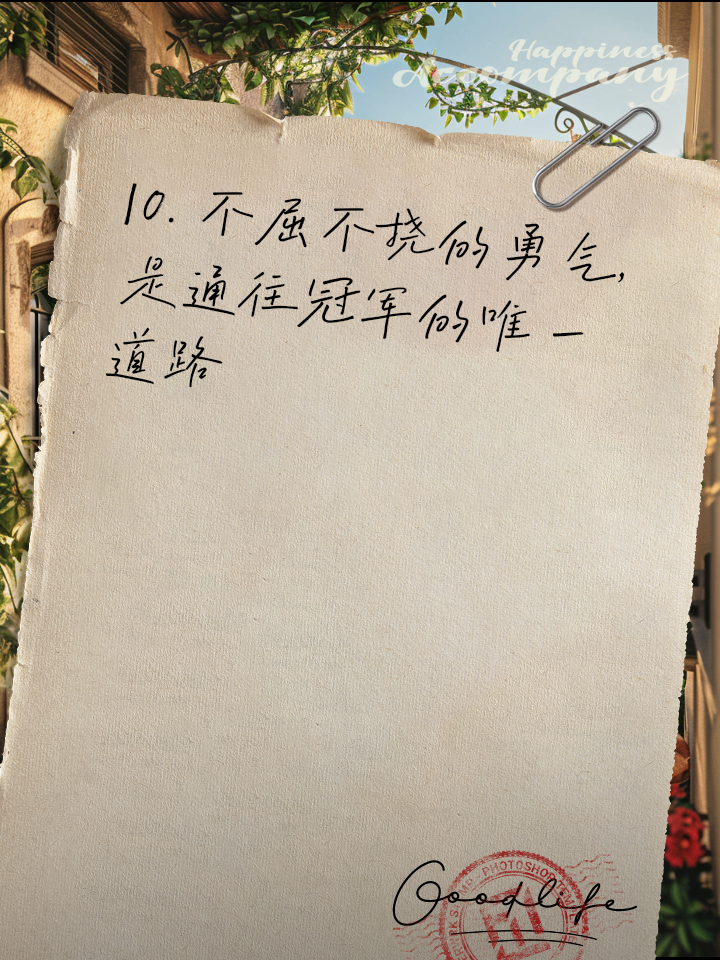 Happiness
Accompany
10. 不屈不挠的勇气,
是通往冠军的唯一
道路
Goodlife